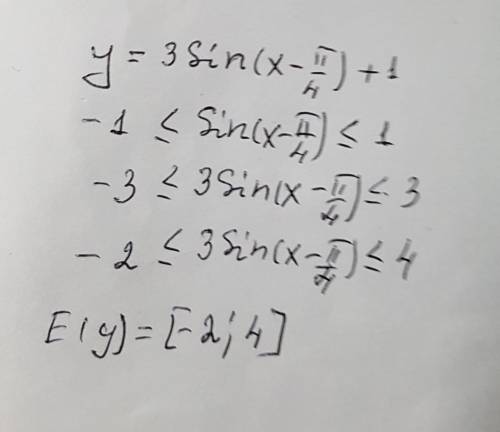 y = 3 Sin(x - π/4) + 1
-1 ≤ Sin(x - π/4) ≤ 1
-3 ≤ 3 Sin(x - π/4) ≤ 3
-2 ≤ 3 Sin(x - π/4) ≤ 4
E(y) = [-2; 4]